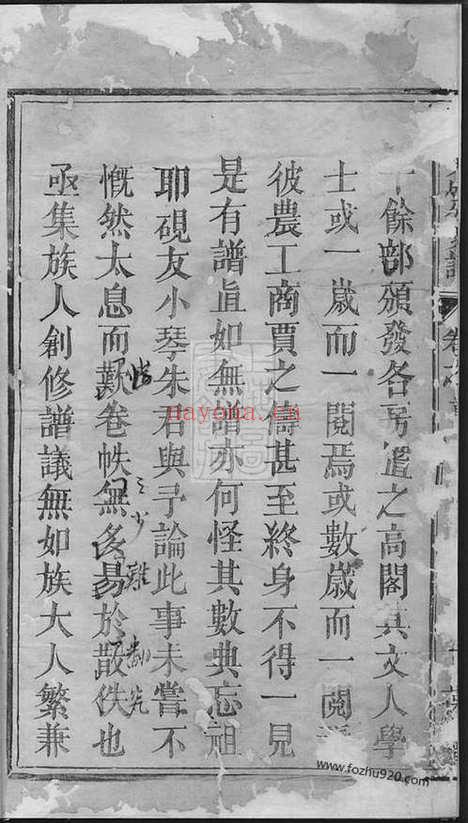 十餘部頒發各房置之高閣其文人學
士或一歲而一閱焉或數歲而一閱
彼農工商賈之儔甚至終身不得一見
是有譜直如無譜亦何怪其數典忘祖
耶硯友小琴朱君與予論此事未嘗不
慨然太息而歎卷帙無多易於散佚也
亟集族人創修譜議無如族大人繁兼
nayona.com
www.fozhu920.com